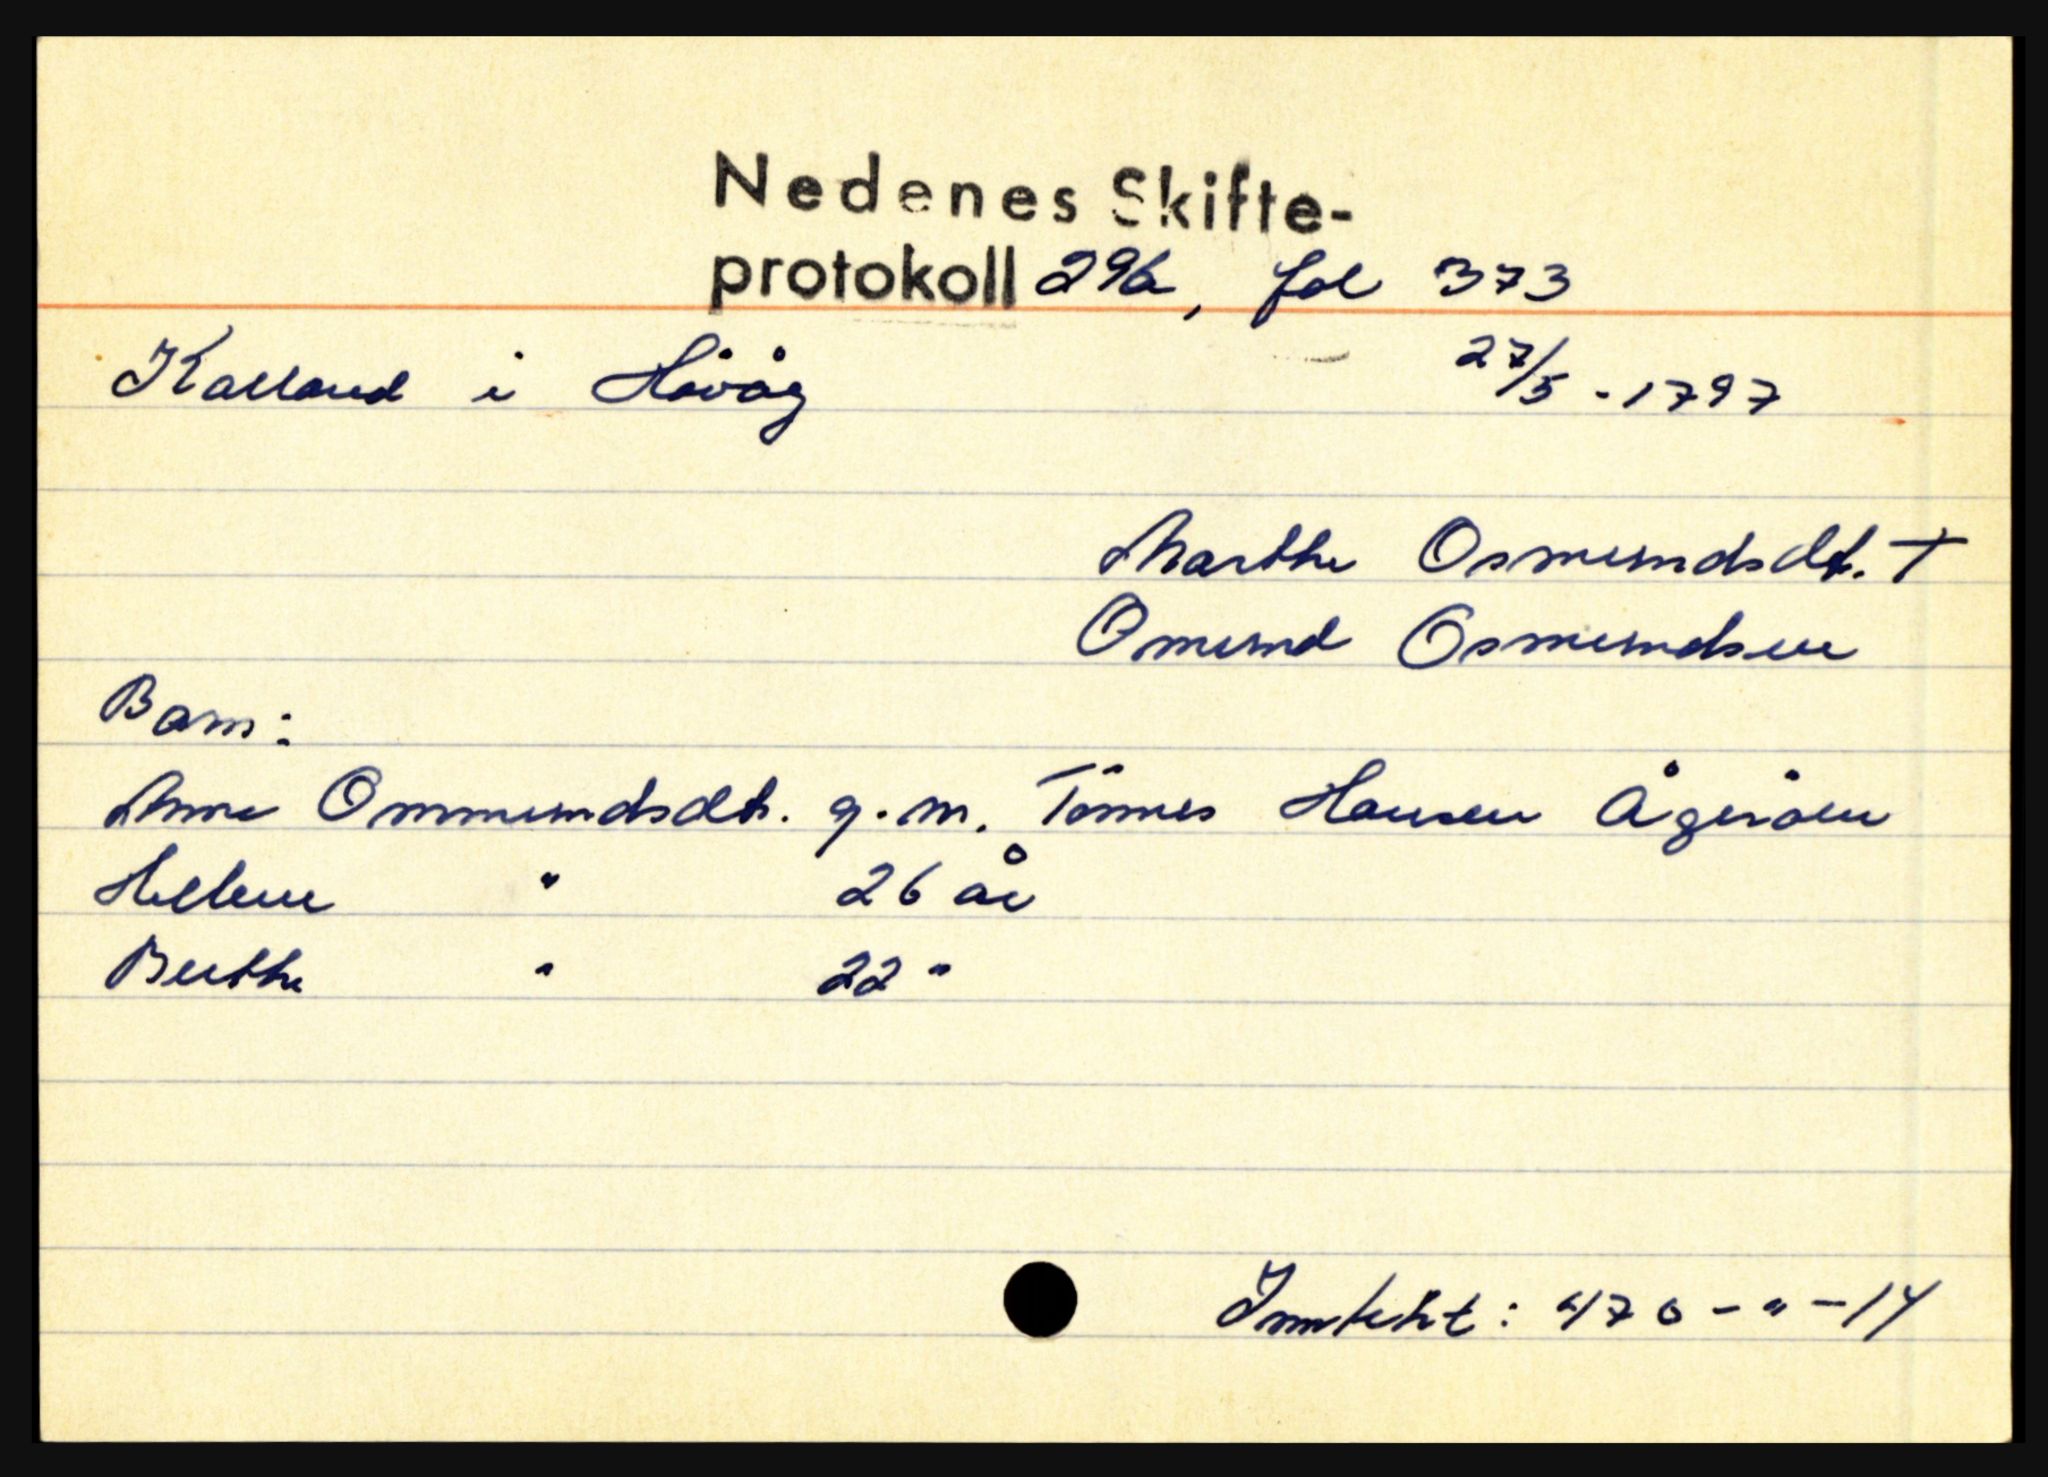 Nedenes Skifte-
protokoll 29b, fol 373
Kalland i Høvåg 27/5 - 1797
Marthe Osmundsdt. †
Omund Osmundsen
Barn:
Anne Ommundsdt. g.m. Tønnes Hansen Ågerøen
Helene " 26 år
Berthe " 22 "
Inntekt: 470 - " - 14